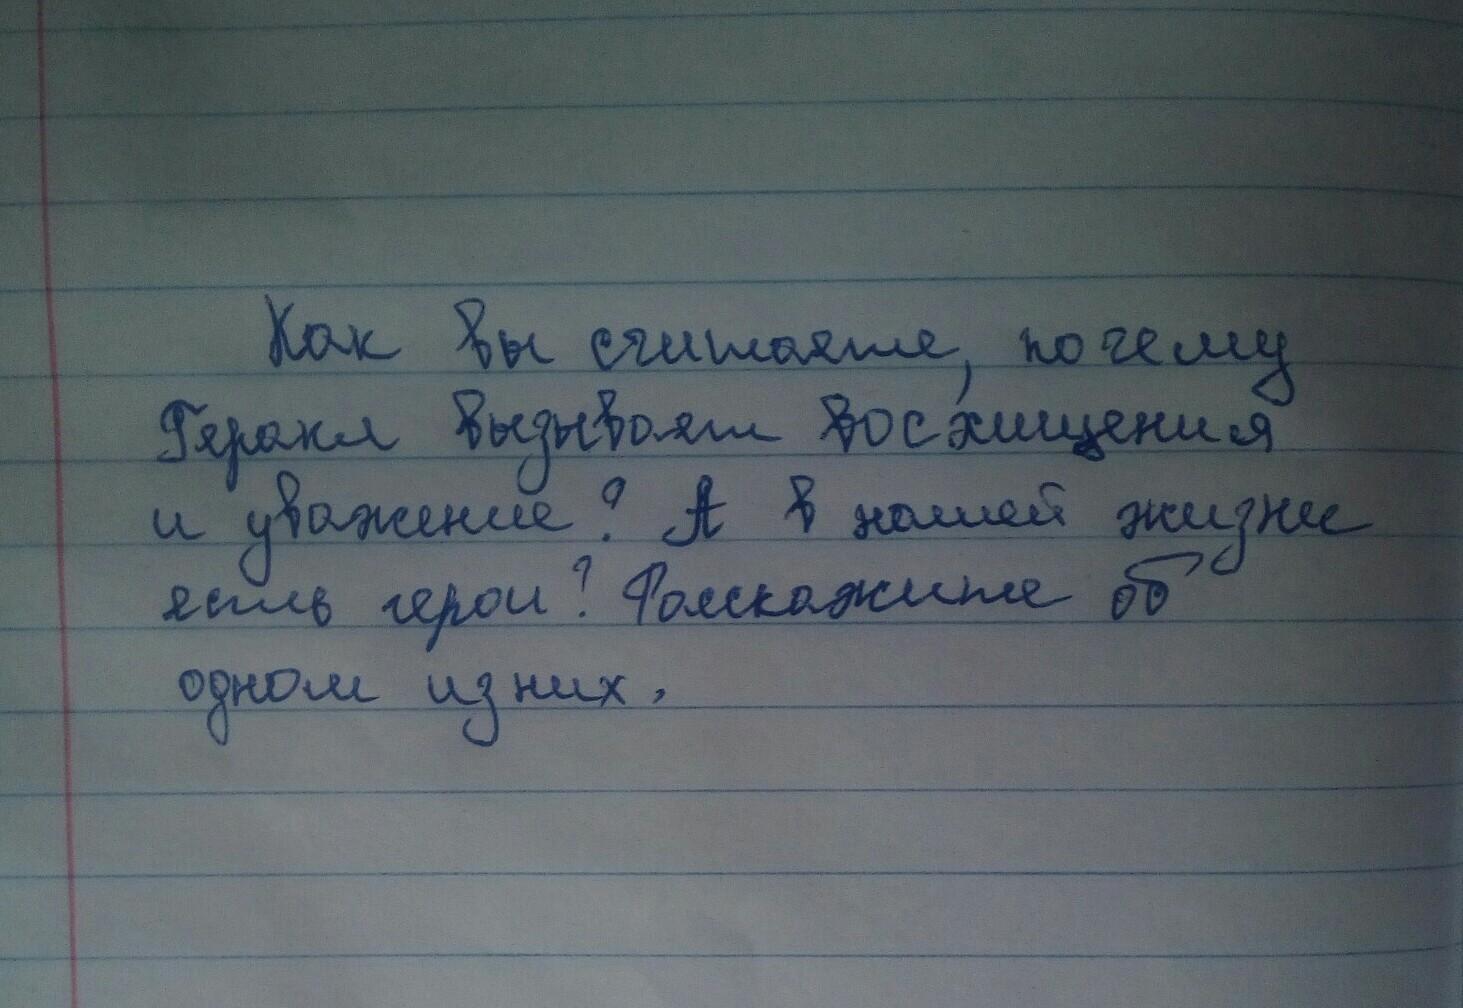 Как вы считаете, почему
Геракл вызывает восхищения
и уважение? А в нашей жизни
есть герои? Расскажите об
одном из них.